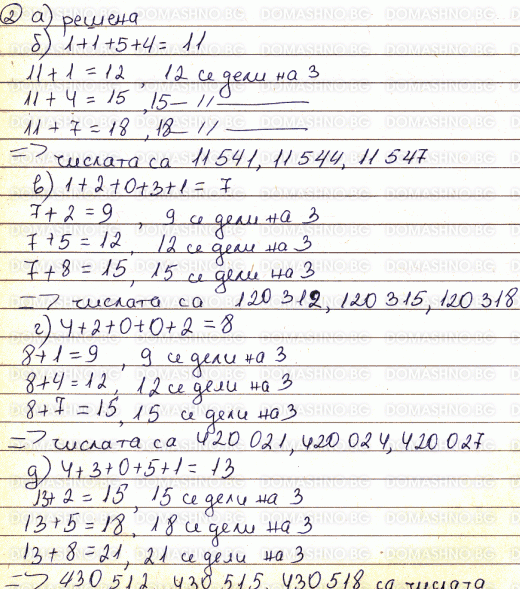 ② а) решена
б) 1+1+5+4= 11
11+1 = 12 , 12 се дели на 3
11+4 = 15 , 15 — 11 ———
11+7 = 18 , 18 — 11 ———
=> числата са 11541, 11544, 11547
в) 1+2+0+3+1= 7
7+2 = 9 , 9 се дели на 3
7+5 = 12 , 12 се дели на 3
7+8 = 15 , 15 се дели на 3
=> числата са 120312, 120315, 120318
г) 4+2+0+0+2 =8
8+1=9 , 9 се дели на 3
8+4=12, 12 се дели на 3
8+7=15, 15 се дели на 3
=> числата са 420 021, 420 024, 420 027
д) 4+3+0+5+1= 13
13+2 = 15, 15 се дели на 3
13+5 = 18, 18 се дели на 3
13+8 = 21, 21 се дели на 3
=> 430 512, 430 515, 430 518 са числата